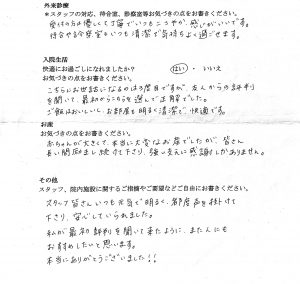 外来診療
*スタッフの対応、待合室、診察室等お気づきの点をお書きください。
受付の方は優しくて丁寧でいつもニコニコやか、感じがいいです。
待合や診察室もいつも清潔で気持ちよく過ごせます。
入院生活
快適にお過ごしになれましたか？ はい ・ いいえ
お気づきの点をお書きください。
こちらにお世話になるのは3度目ですが、友人からの評判
を聞いて、最初からこちらを選んで正解でした。
ご飯はおいしいし、お部屋も明るく清潔で、快適です。
お産
お気づきの点をお書きください。
赤ちゃんが大きくて、本当に大変なお産でしたが、皆さん
長い間励まし続けて下さり、強い支えに感謝しかありません。
その他
スタッフ、院内施設に関するご指摘やご要望などご自由にお書きください。
スタッフ皆さんいつも元気で明るく、都度声を掛けて
下さり、安心していられました。
私が最初評判を聞いて来たように、また人にも
お勧めしたいと思います。
本当にありがとうございました!!